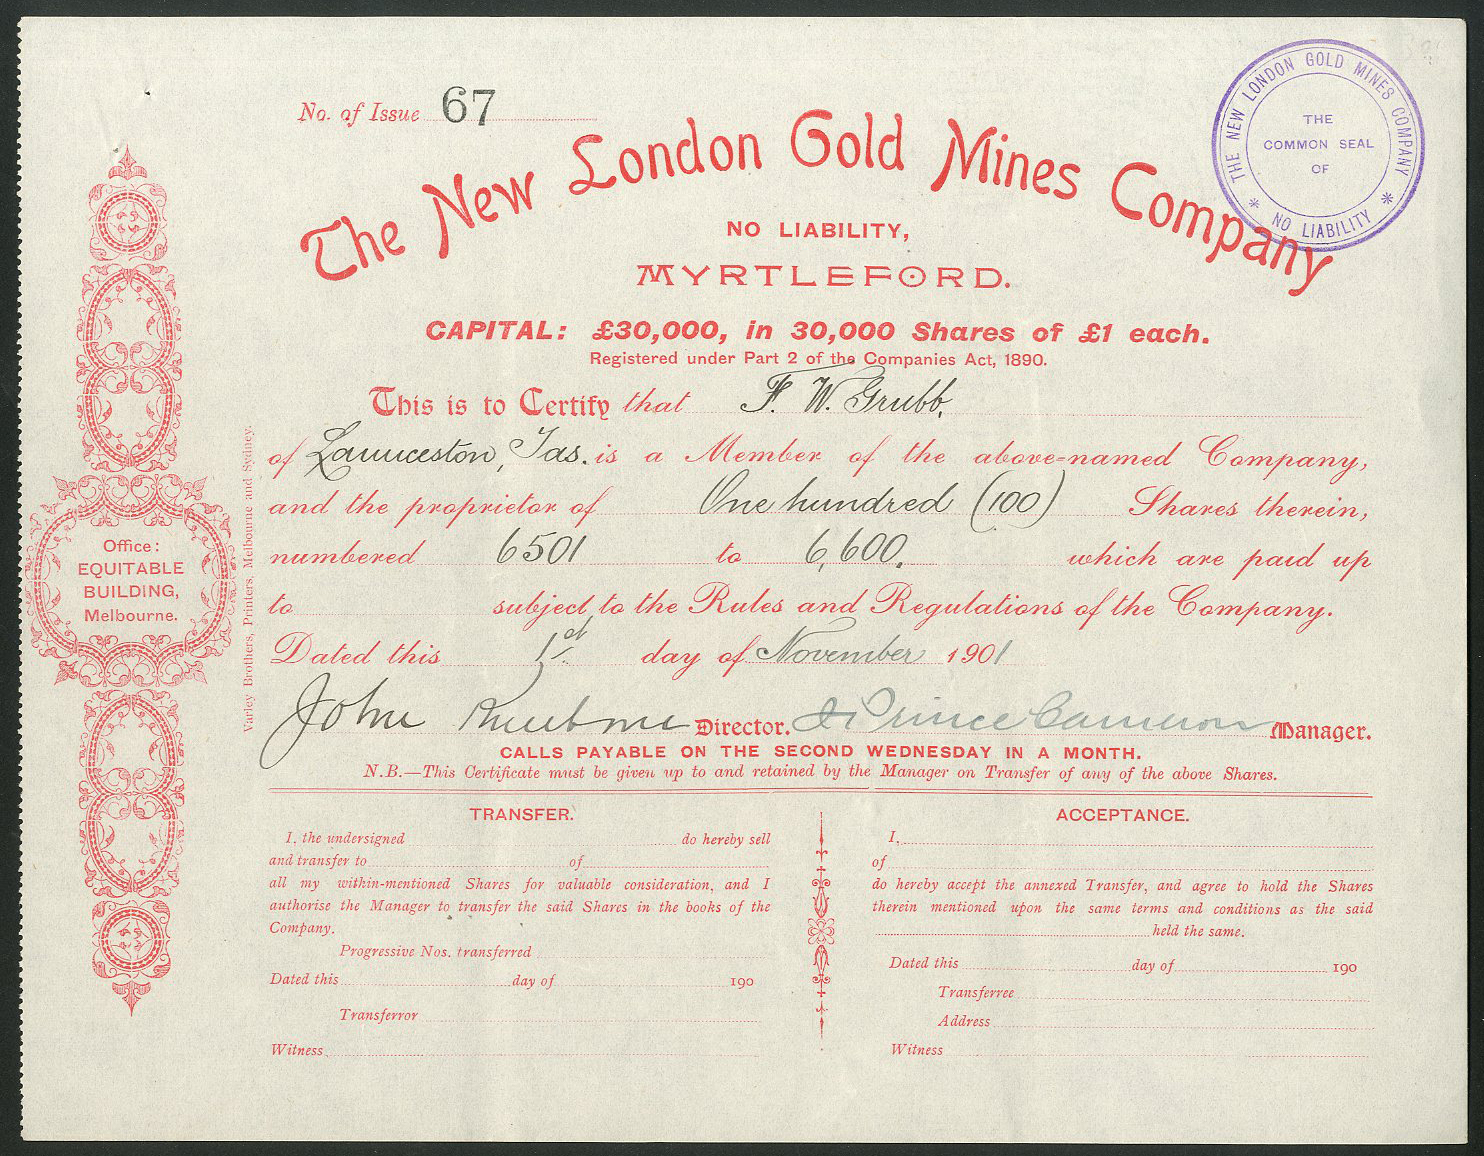 No. of Issue 67
The New London Gold Mines Company
NO LIABILITY,
MYRTLEFORD.
CAPITAL: £30,000, in 30,000 Shares of £1 each.
Registered under Part 2 of the Companies Act, 1890.
This is to Certify that F. W. Grubb,
of Launceston, Tas. is a Member of the above-named Company,
and the proprietor of One hundred (100) Shares therein,
numbered 6501 to 6,600. which are paid up
to subject to the Rules and Regulations of the Company.
Dated this 1st day of November 1901
John Director. Prince Cameron Manager.
CALLS PAYABLE ON THE SECOND WEDNESDAY IN A MONTH.
N.B.—This Certificate must be given up to and retained by the Manager on Transfer of any of the above Shares.
THE NEW LONDON GOLD MINES COMPANY
* NO LIABILITY *
THE
COMMON SEAL
OF
Office:
EQUITABLE
BUILDING,
Melbourne.
Varley Brothers, Printers, Melbourne and Sydney.
TRANSFER.
I, the undersigned do hereby sell
and transfer to of
all my within-mentioned Shares for valuable consideration, and I
authorise the Manager to transfer the said Shares in the books of the
Company.
Progressive Nos. transferred
Dated this day of 190
Transferror
Witness
ACCEPTANCE.
I,
of
do hereby accept the annexed Transfer, and agree to hold the Shares
therein mentioned upon the same terms and conditions as the said
held the same.
Dated this day of 190
Transferree
Address
Witness